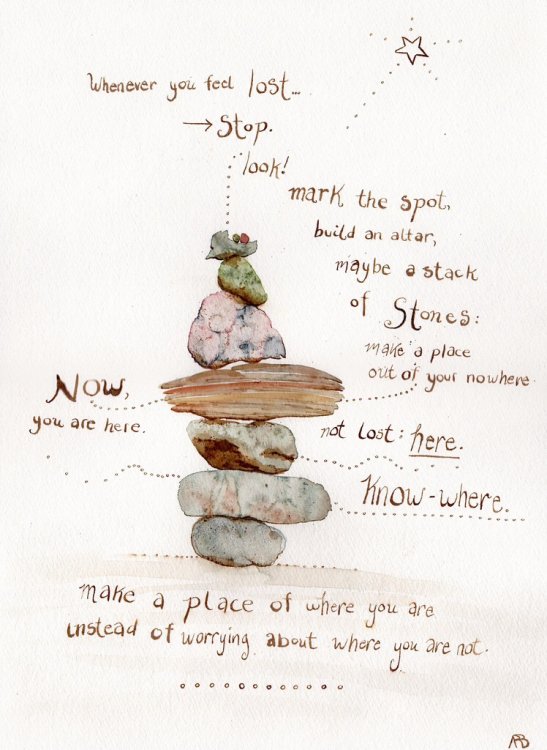 Whenever you feel lost...
→ Stop.
look!
mark the spot,
build an altar,
maybe a stack
of Stones:
make a place
out of your nowhere.
Now,
you are here.
not lost: here.
Know-where.
make a place of where you are
instead of worrying about where you are not.
RB